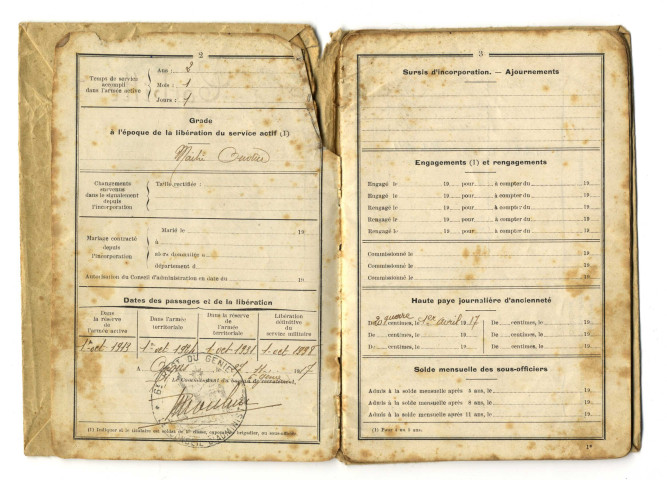 2
Temps de service accompli dans l'armée active
Ans : 2
Mois : 1
Jours : 7
Grade
à l'époque de la libération du service actif (1)
Maitre Ouvrier
Changements survenus dans le signalement depuis l'incorporation
Taille rectifiée :
Mariage contracté depuis l'incorporation
Marié le 19
à
département d
Autorisation du Conseil d'administration en date du 19
Dates des passages et de la libération
Dans la réserve de l'armée active
Dans l'armée territoriale
Dans la réserve de l'armée territoriale
Libération définitive du service militaire
1er oct 1913
1er oct 1924
1 oct 1931
1 oct 1938
A 17
Le Commandant du bureau de recrutement,
3
Sursis d'incorporation. — Ajournements
Engagements (1) et rengagements
Engagé le 19 pour à compter du 19
Engagé le 19 pour à compter du 19
Rengagé le 19 pour à compter du 19
Rengagé le 19 pour à compter du 19
Rengagé le 19 pour à compter du 19
Commissionné le 19
Commissionné le 19
Commissionné le 19
Haute paye journalière d'ancienneté
De guerre centimes, le 1er avril 17 De centimes, le 19
De centimes, le 19 De centimes, le 19
De centimes, le 19 De centimes, le 19
Solde mensuelle des sous-officiers
Admis à la solde mensuelle après 5 ans, le 19
Admis à la solde mensuelle après 8 ans, le 19
Admis à la solde mensuelle après 11 ans, le 19